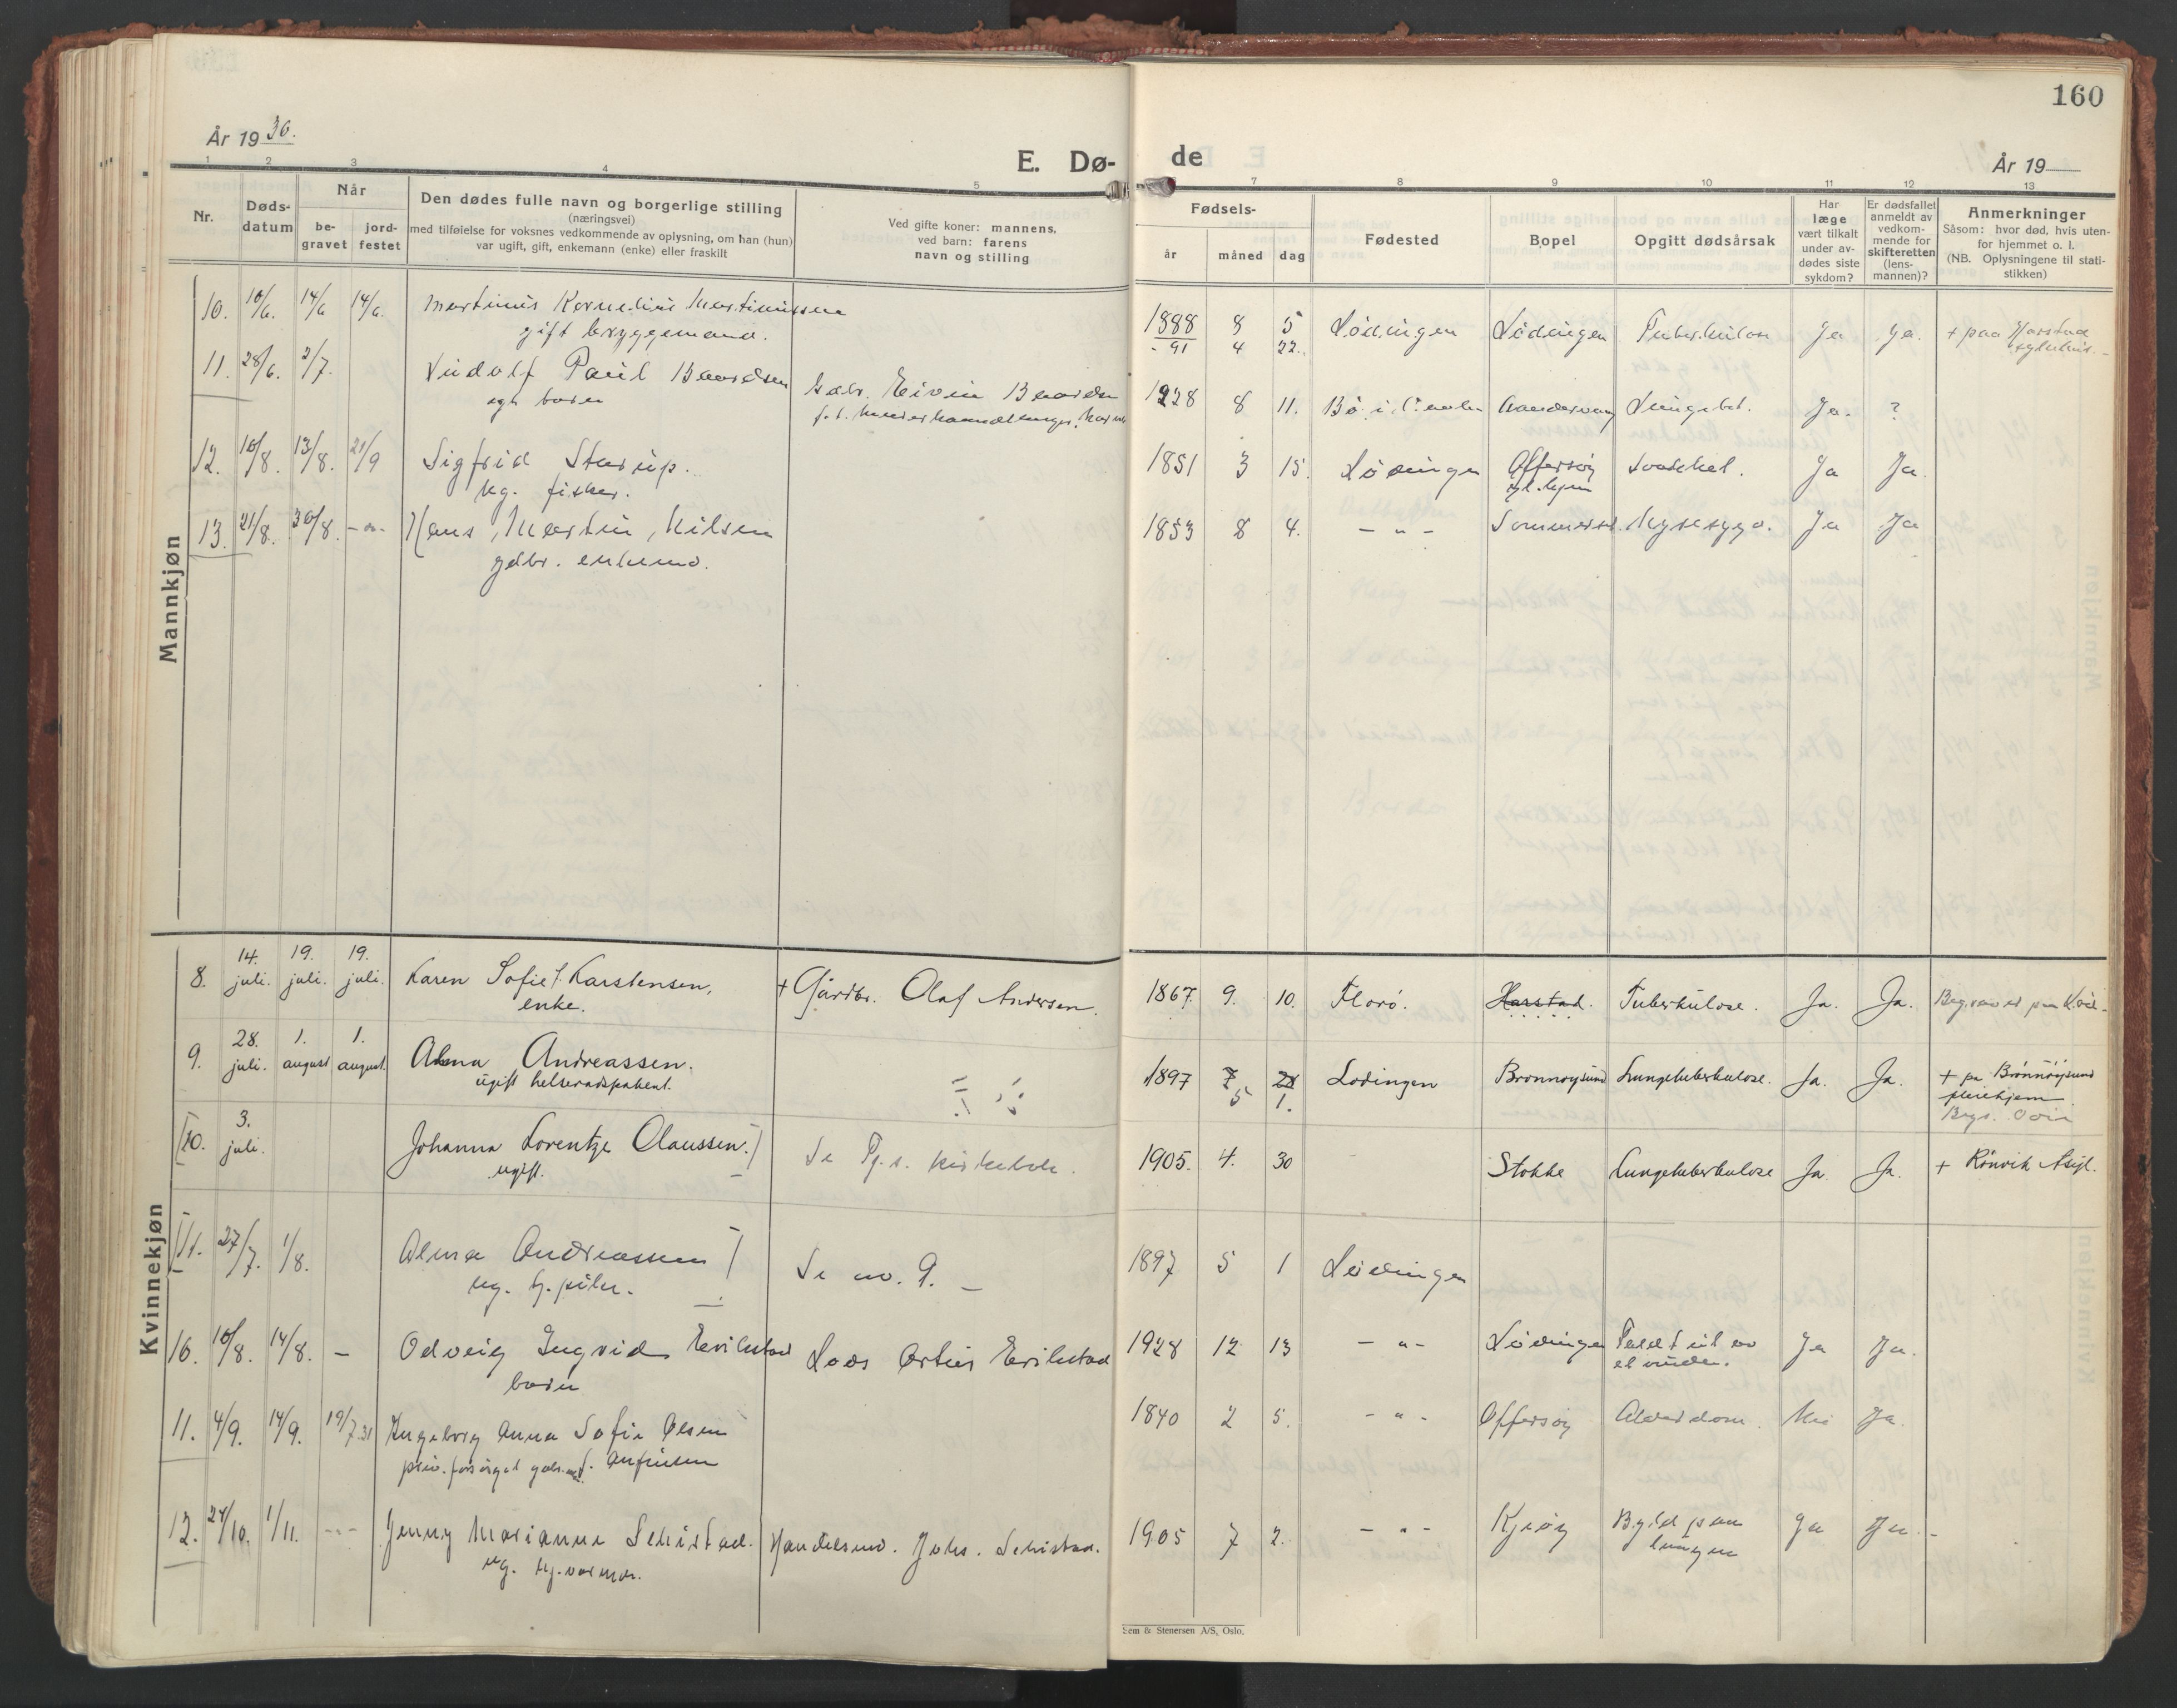 160
År 1930.
År 19
E. Dø-
de
1 2 3 4 5
7 8 9 10 11 12 13
Nr.
Døds-
datum
Når
be-
gravet
jord-
festet
Den dødes fulle navn og borgerlige stilling
(næringsvei)
med tilføielse for voksnes vedkommende av oplysning, om han (hun)
var ugift, gift, enkemann (enke) eller fraskilt
Ved gifte koner: mannens,
ved barn: farens
navn og stilling
Fødsels-
år måned dag
Fødested
Bopel
Opgitt dødsårsak
Har
læge
vært tilkalt
under av-
dødes siste
sykdom?
Er dødsfallet
anmeldt av
vedkom-
mende for
skifteretten
(lens-
mannen)?
Anmerkninger
Såsom: hvor død, hvis uten-
for hjemmet o. l.
(NB. Oplysningene til stati-
stikken)
Mannkjøn
10. 10/6. 14/6 14/6. Martinus Kornelius Martinussen 1888 8 5 Lødingen Lødingen Tuberkulose Ja Ja. + paa Harstad
gift bryggemand. - 91 4 22. sykehus.
11. 28/6. 2/7. Paul Baardsen Gbr. Eivin Baardsen 1928 8 11. Bø i Lungebet. Ja. ?
12. 10/8. 13/8. 21/9 Sigfrid Starup. 1851 3 15. Lødingen Offersøy Ja Ja.
ug. fisker. gl. hjem
13. 21/8. 30/8. - " - Hans Martin Nilsen 1853 8 4. - " - Ja Ja
gdbr. enkemd.
Kvinnekjøn
8. 14. juli. 19. juli. 19. juli. Karen Sofie Karstensen, + Gårdbr. Olaf Andersen. 1867. 9. 10. Florø. Harstad. Tuberkulose. Ja. Ja. Begravet paa
enke.
9. 28. juli. 1. august 1. august. Alma Andreassen. 1897 7 28 Lødingen Brønnøysund Lungetuberkulose. Ja. Ja. + på Brønnøysund
ugift helserådspatient. 5 1. pleiehjem
Begr.
[10. 3. juli. Johanna Lorentze Olaussen.] Se Pj. s. kirkebok. 1905. 4. 30 Stokke Lungetuberkulose Ja Ja. + Rønvik Asyl.
ugift.
[11. 27/7. 1/8. Alma Andreassen] Se nr. 9. - 1897 5 1 Lødingen
ug.
10. 10/8. 14/8. - Odveig Ingrid Erikstad Lars Erikstad 1928 12 13 - " - Lødingen Faldt ut av Ja Ja.
barn et vindu.
11. 4/9. 14/9. 19/7 31 Ingeborg Anna Sofie Olsen 1840 2 5. - " - Offersøy Alderdom. Nei Ja.
priv. forsørget
12. 24/10. 1/11. - " - Jenny Marianne Schistad. Handelsmd. Johs. Schistad. 1905 7 2. - " - Kjeøy Byld paa Ja Ja. -
ug. lungen
Sem & Stenersen A/S, Oslo.